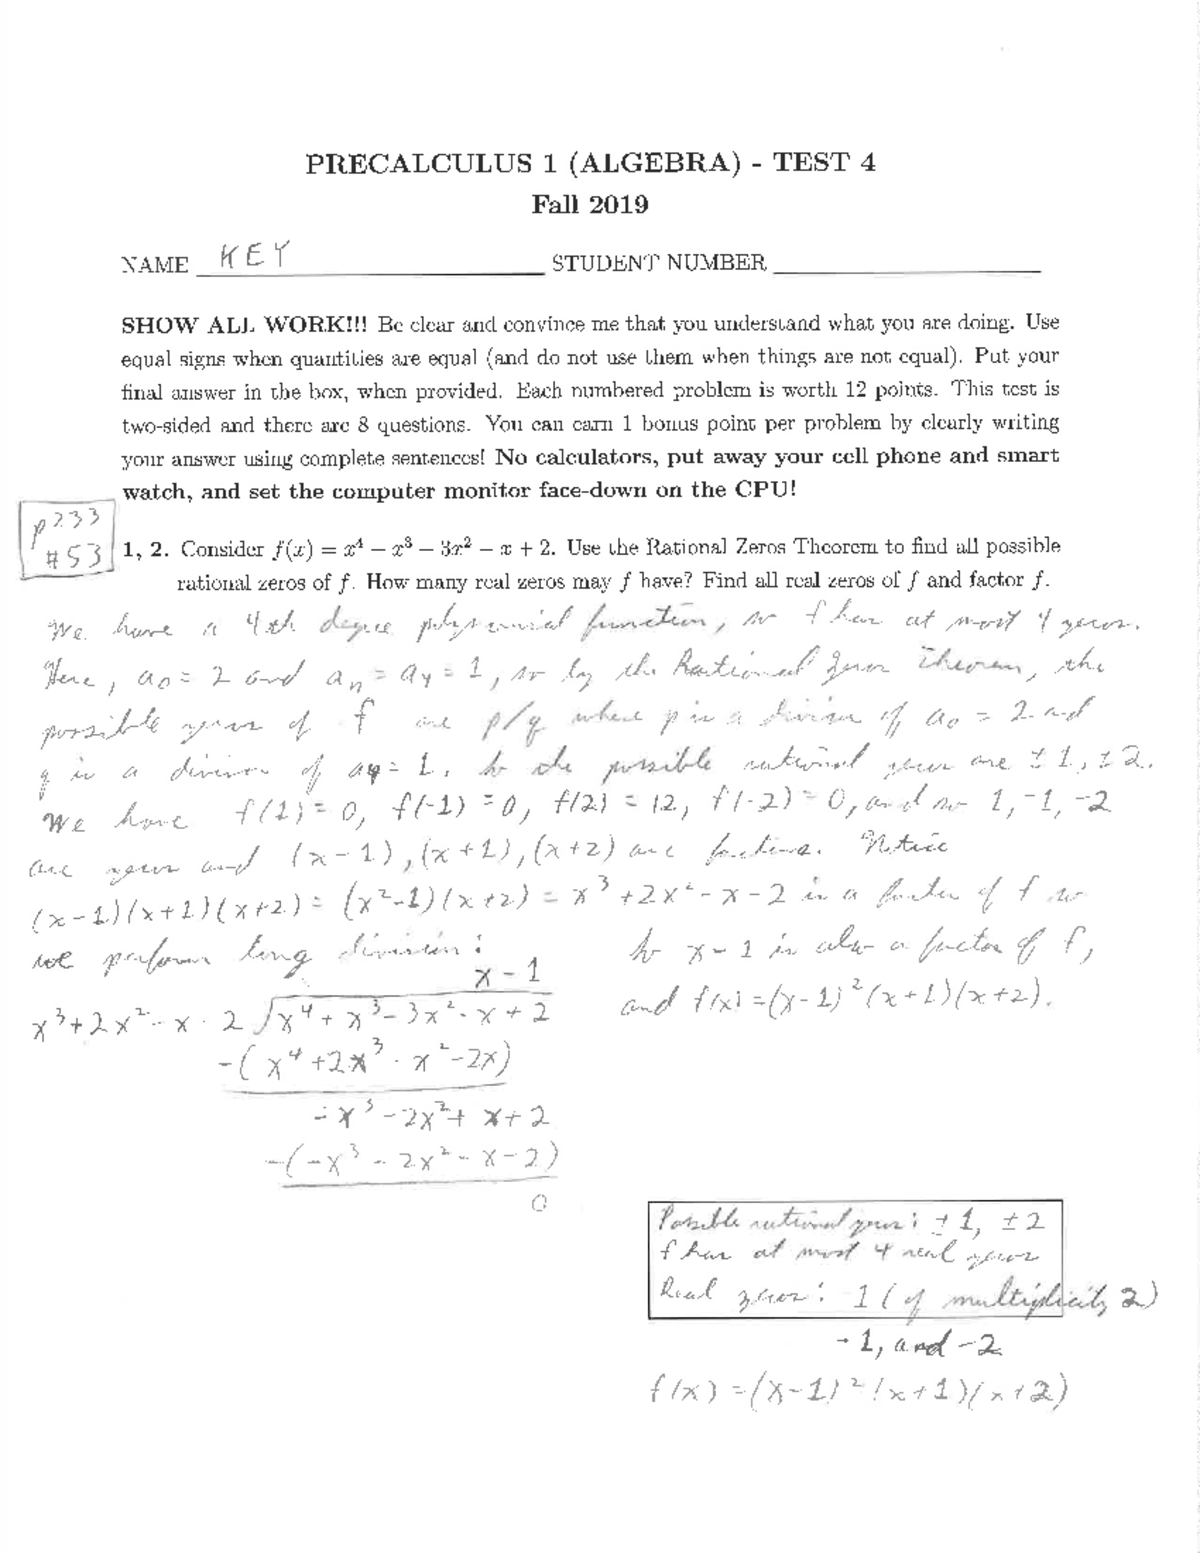 PRECALCULUS 1 (ALGEBRA) - TEST 4
Fall 2019
NAME KEY STUDENT NUMBER
SHOW ALL WORK!!! Be clear and convince me that you understand what you are doing. Use
equal signs when quantities are equal (and do not use them when things are not equal). Put your
final answer in the box, when provided. Each numbered problem is worth 12 points. This test is
two-sided and there are 8 questions. You can earn 1 bonus point per problem by clearly writing
your answer using complete sentences! No calculators, put away your cell phone and smart
watch, and set the computer monitor face-down on the CPU!
p233
#53
1, 2. Consider f(x) = x⁴ − x³ − 3x² − x + 2. Use the Rational Zeros Theorem to find all possible
rational zeros of f. How many real zeros may f have? Find all real zeros of f and factor f.
We have a 4th degree polynomial function, so f has at most 4 zeros.
Here, a₀ = 2 and aₙ = a₄ = 1, so by the Rational Zeros Theorem, the
possible zeros of f are p/q where p is a divisor of a₀ = 2 and
q is a divisor of a₄ = 1. So the possible rational zeros are ±1, ±2.
We have f(1) = 0, f(-1) = 0, f(2) = 12, f(-2) = 0, and so 1, -1, -2
are zeros and (x-1), (x+1), (x+2) are factors. Notice
(x-1)(x+1)(x+2) = (x²-1)(x+2) = x³+2x²-x-2 is a factor of f so
we perform long division:
x-1
x³+2x²-x-2 x⁴+x³-3x²-x+2
-(x⁴+2x³-x²-2x)
-x³-2x²+x+2
-(-x³-2x²-x-2)
0
So x-1 is also a factor of f,
and f(x) = (x-1)²(x+1)(x+2).
Possible rational zeros: ±1, ±2
f has at most 4 real zeros
Real zeros: 1 (of multiplicity 2)
-1, and -2
f(x) = (x-1)²(x+1)(x+2)